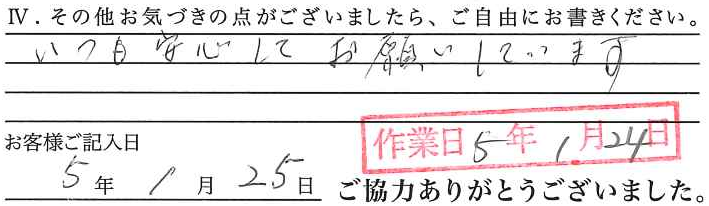 Ⅳ．その他お気づきの点がございましたら、ご自由にお書きください。
いつも安心してお願いしています
お客様ご記入日
作業日5年1月24日
5年1月25日
ご協力ありがとうございました。